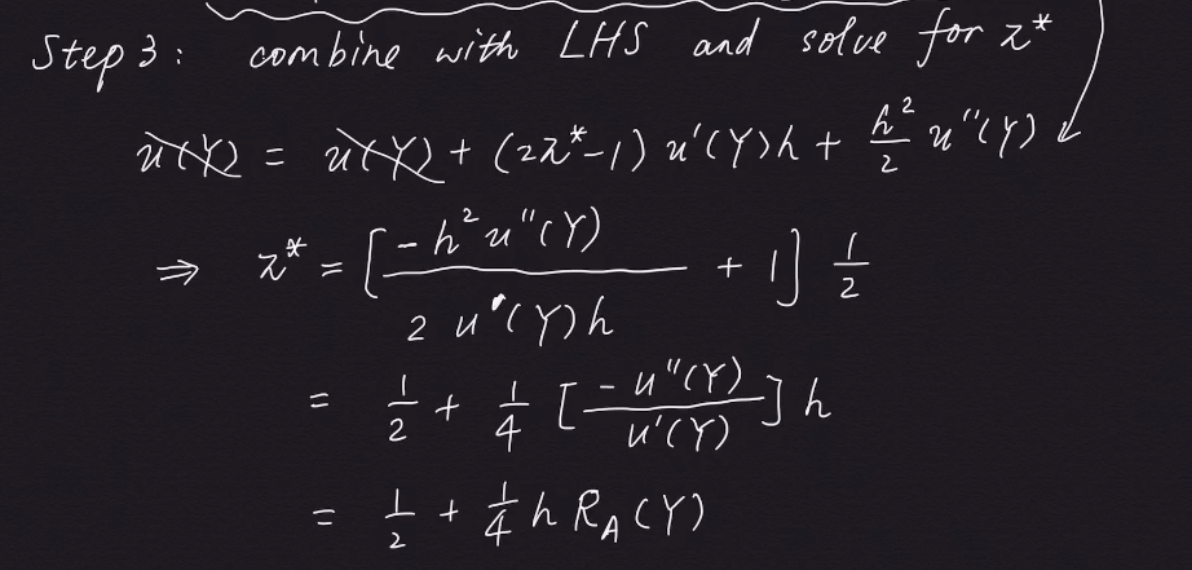 Step 3: combine with LHS and solve for π*
u(Y) = u(Y) + (2π*-1) u'(Y)h + h²/2 u''(Y)
⇒ π* = [-h² u''(Y) / 2 u'(Y)h + 1] 1/2
= 1/2 + 1/4 [-u''(Y) / u'(Y)] h
= 1/2 + 1/4 h R_A(Y)